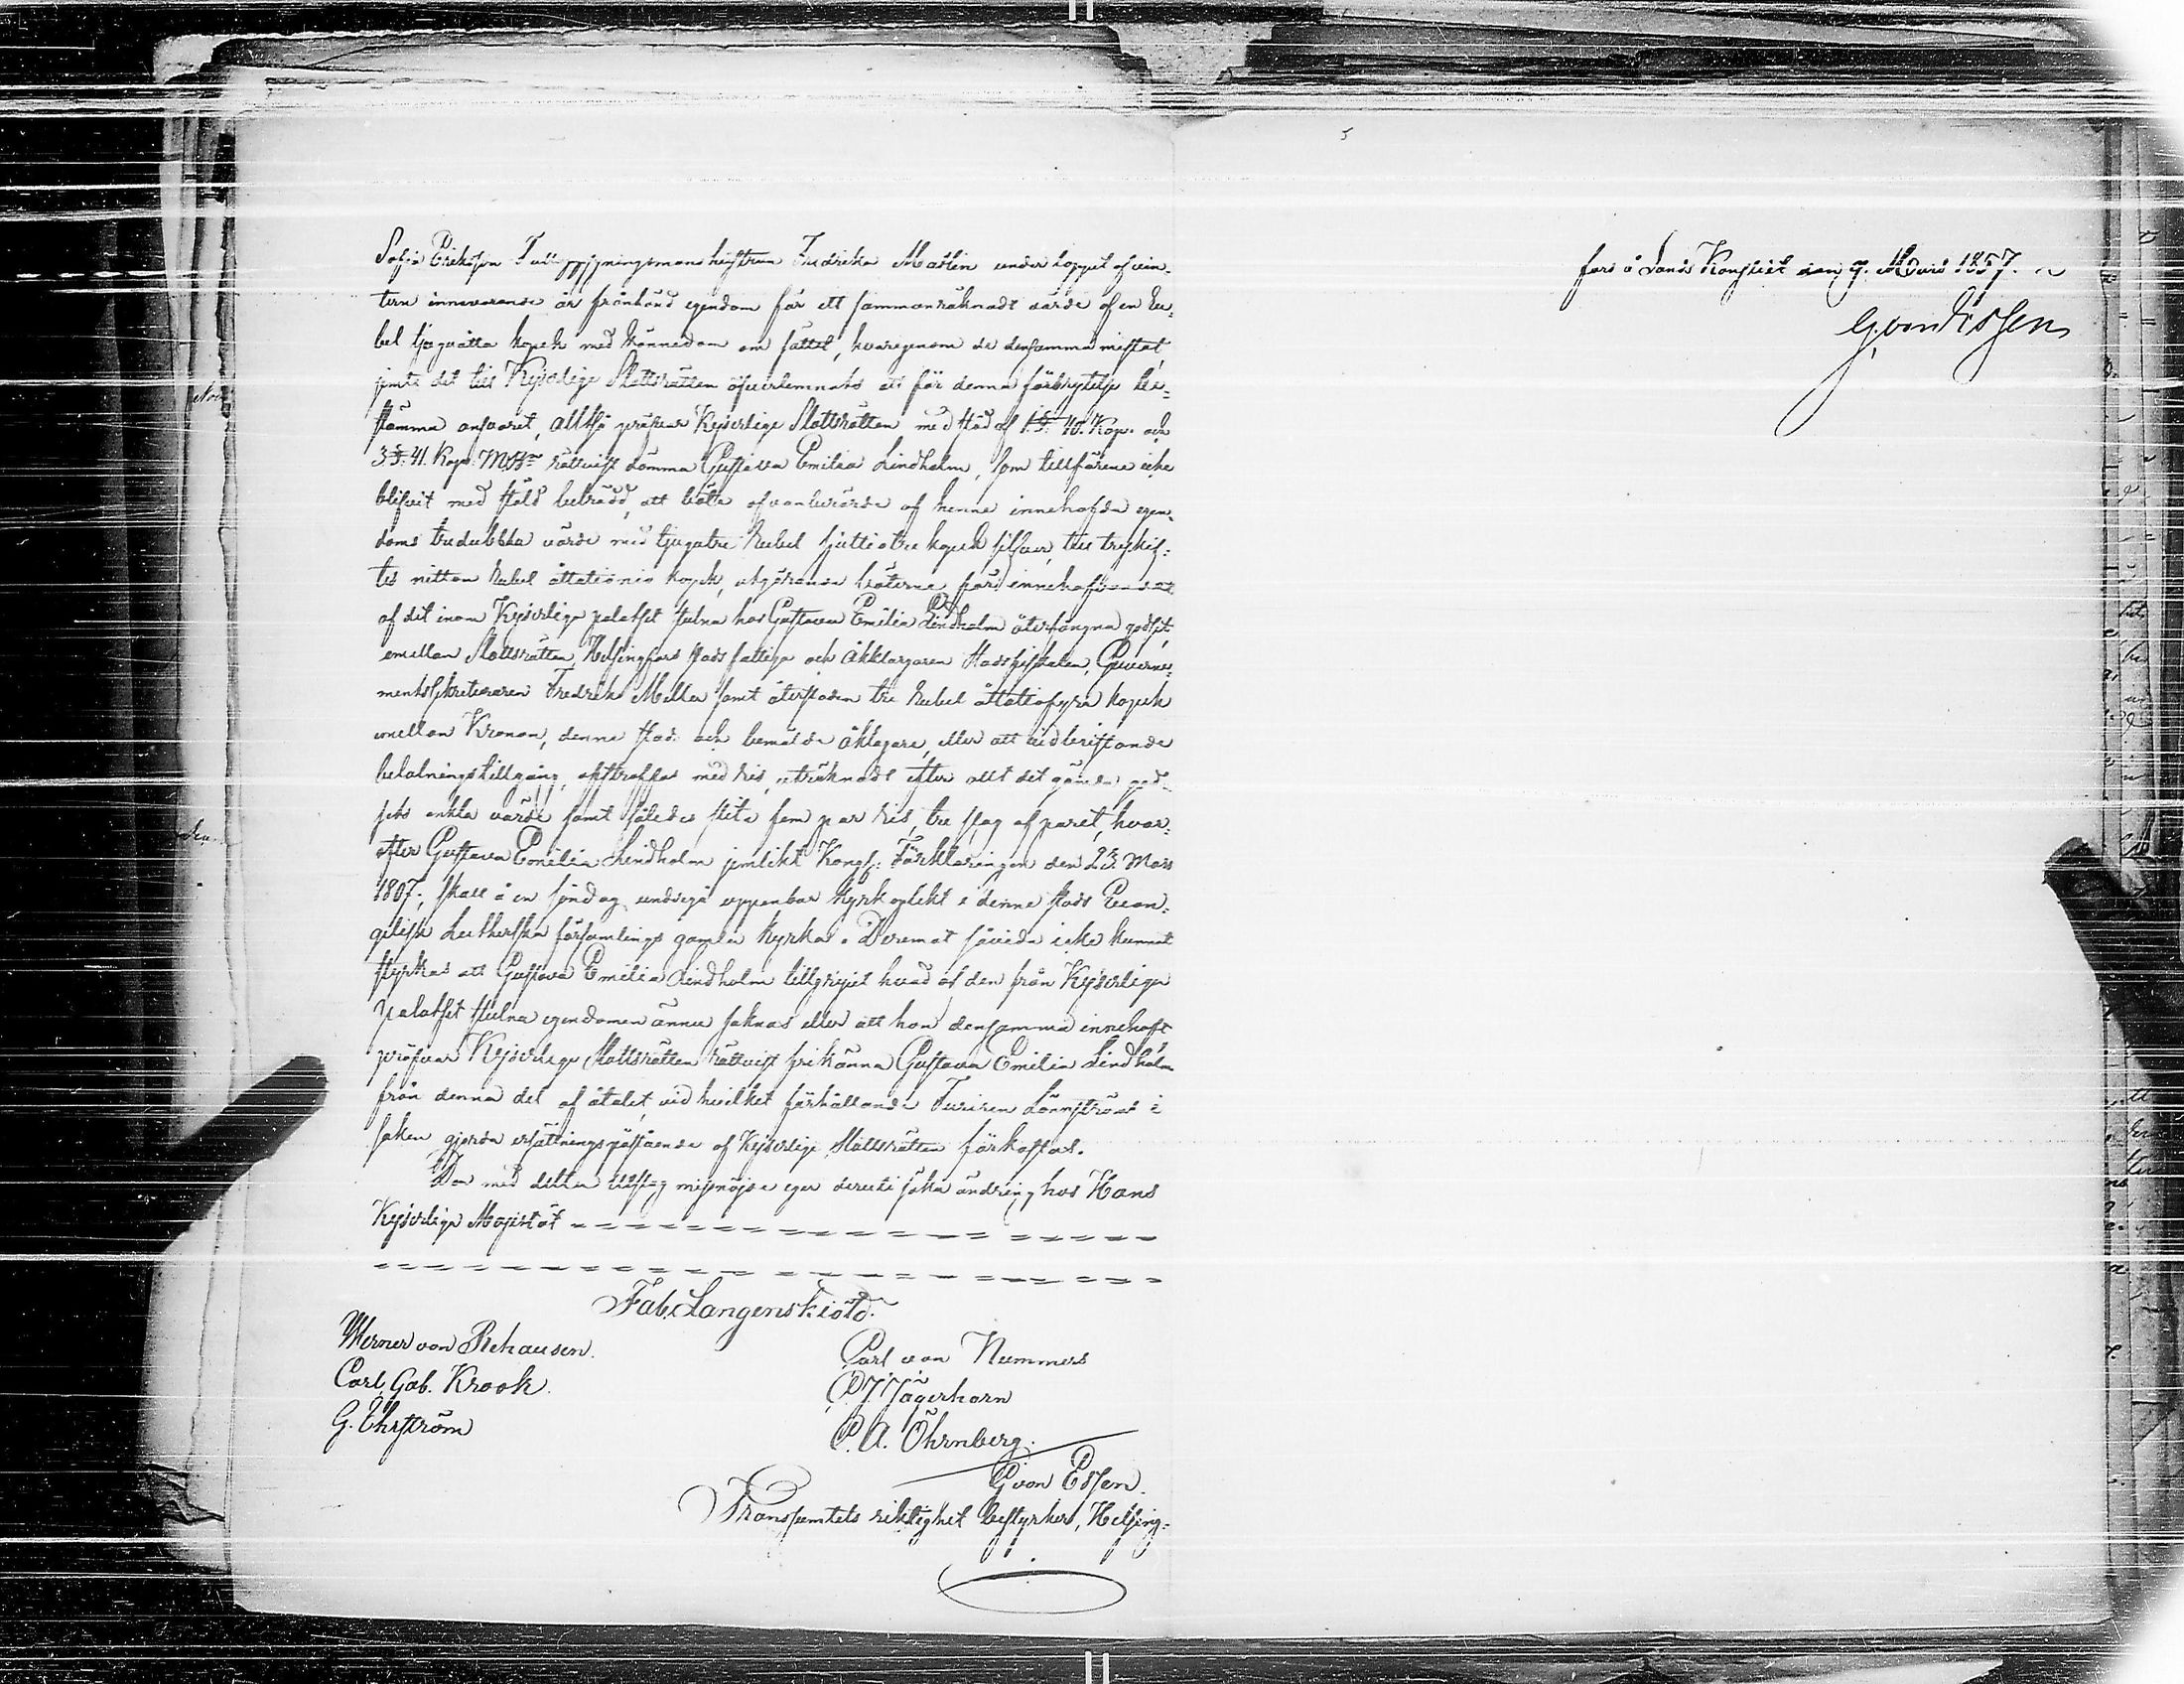 Sofia Erikson Tulluppsyningsmans hustrun Fredrika Maslin under loppet af vin-
tern innevarande år frånhänd egendom för ett sammanräknadt värde af en Ru-
bel tjuguåtta kopek med kännedom om sättet, hvarigenom de densamma mistat,
jemte det till Kejserliga Slottsrätten öfverlemnats att för denna förbrytelse be-
stämma ansvaret, Alltså pröfvar Kejserliga Slottsrätten med stöd af 1. §. 40. Kap. och
3. §. 41. Kap. MB rättvist dömma Gustava Emilia Lindholm, som tillförene icke
blifvit med stöld beträdd, att böta ofvanberörde af henne innehafda egen-
doms tredubbla värde med tjugutre Rubel sjuttiotre kopek silfver, till treskif-
tes nitton Rubel åttationio kopek, utgörande böterne för innehafvandet
af det inom Kejserliga palatset stulna hos Gustava Emilia Lindholm återfångna godset,
emellan Slottsrätten, Helsingfors stads fattiga och åklagaren Stadsfiskalen, Guverne-
mentssekreteraren Fredrik Miller samt återstoden tre Rubel åttatiofyra kopek
emellan Kronan, denne stad och bemälde åklagare, eller att vid bristande
betalningstillgång, afstraffas med ris, uträknadt efter allt det gömda god-
sets enkla värde samt således slita fem par ris, tre slag af paret, hvar-
efter Gustava Emilia Lindholm jemlikt Kongl: Förklaringen den 23. Mars
1807, skall å en söndag undergå uppenbar kyrkoplikt i denne stads Evan-
gelisk Lutherska församlings gamla kyrka. Deremot såvida icke kunnat
styrkas att Gustava Emilia Lindholm tillgripit hvad af den från Kejserliga
palatset stulna egendomen ännu saknas eller att hon densamma innehaft
pröfvar Kejserliga Slottsrätten rättvist frikänna Gustava Emilia Lindholm
från denna del af åtalet, vid hvilket förhållande Furiren Lönnströms i
saken gjorda ersättningspåstående af Kejserliga Slottsrätten förkastas.
Den med detta utslag missnöjde eger deruti söka ändring hos Hans
Kejserliga Majestät
Fab. Langenskiöld.
Werner von Rehausen.
Carl von Nummers
Carl Gab. Krook.
C. J. Jägerhorn
G. Ehrström
C. A. Öhrnberg.
G von Essen.
Transsumtets riktighet bestyrker, Helsing-
fors å Lands Kansliet den 7. Mars 1857.
G von Essen